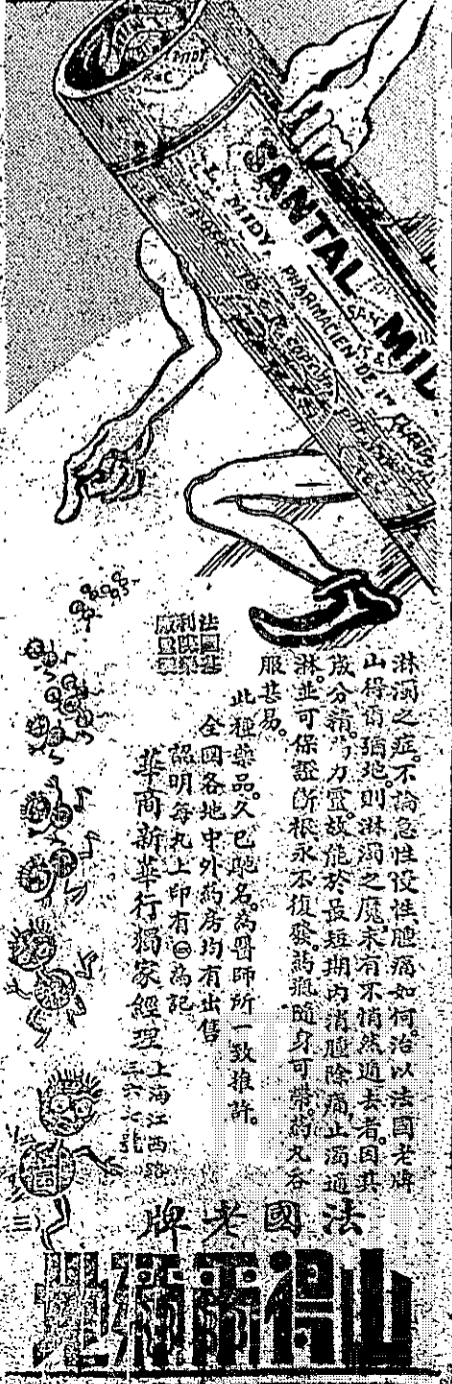 MIDY
SANTAL MIDY
L. MIDY, PHARMACIEN DE 1re
淋濁之症。不論急性慢性。腫痛如何。治以法國老牌
山得爾猕地。則淋濁之魔。未有不悄然遁去者。因其
成分精。力靈。故能於最短期內消腫除痛。止濁通
淋。並可保證斷根永不復發。藥瓶隨身可帶。藥丸吞
服甚易。
此種藥品。久已馳名。為醫師所一致推許。
全國各地中外藥房均有出售
認明每丸上印有 為記
華商新華行獨家經理
上海江西路
三六七號
(三)
法國老牌
山得爾